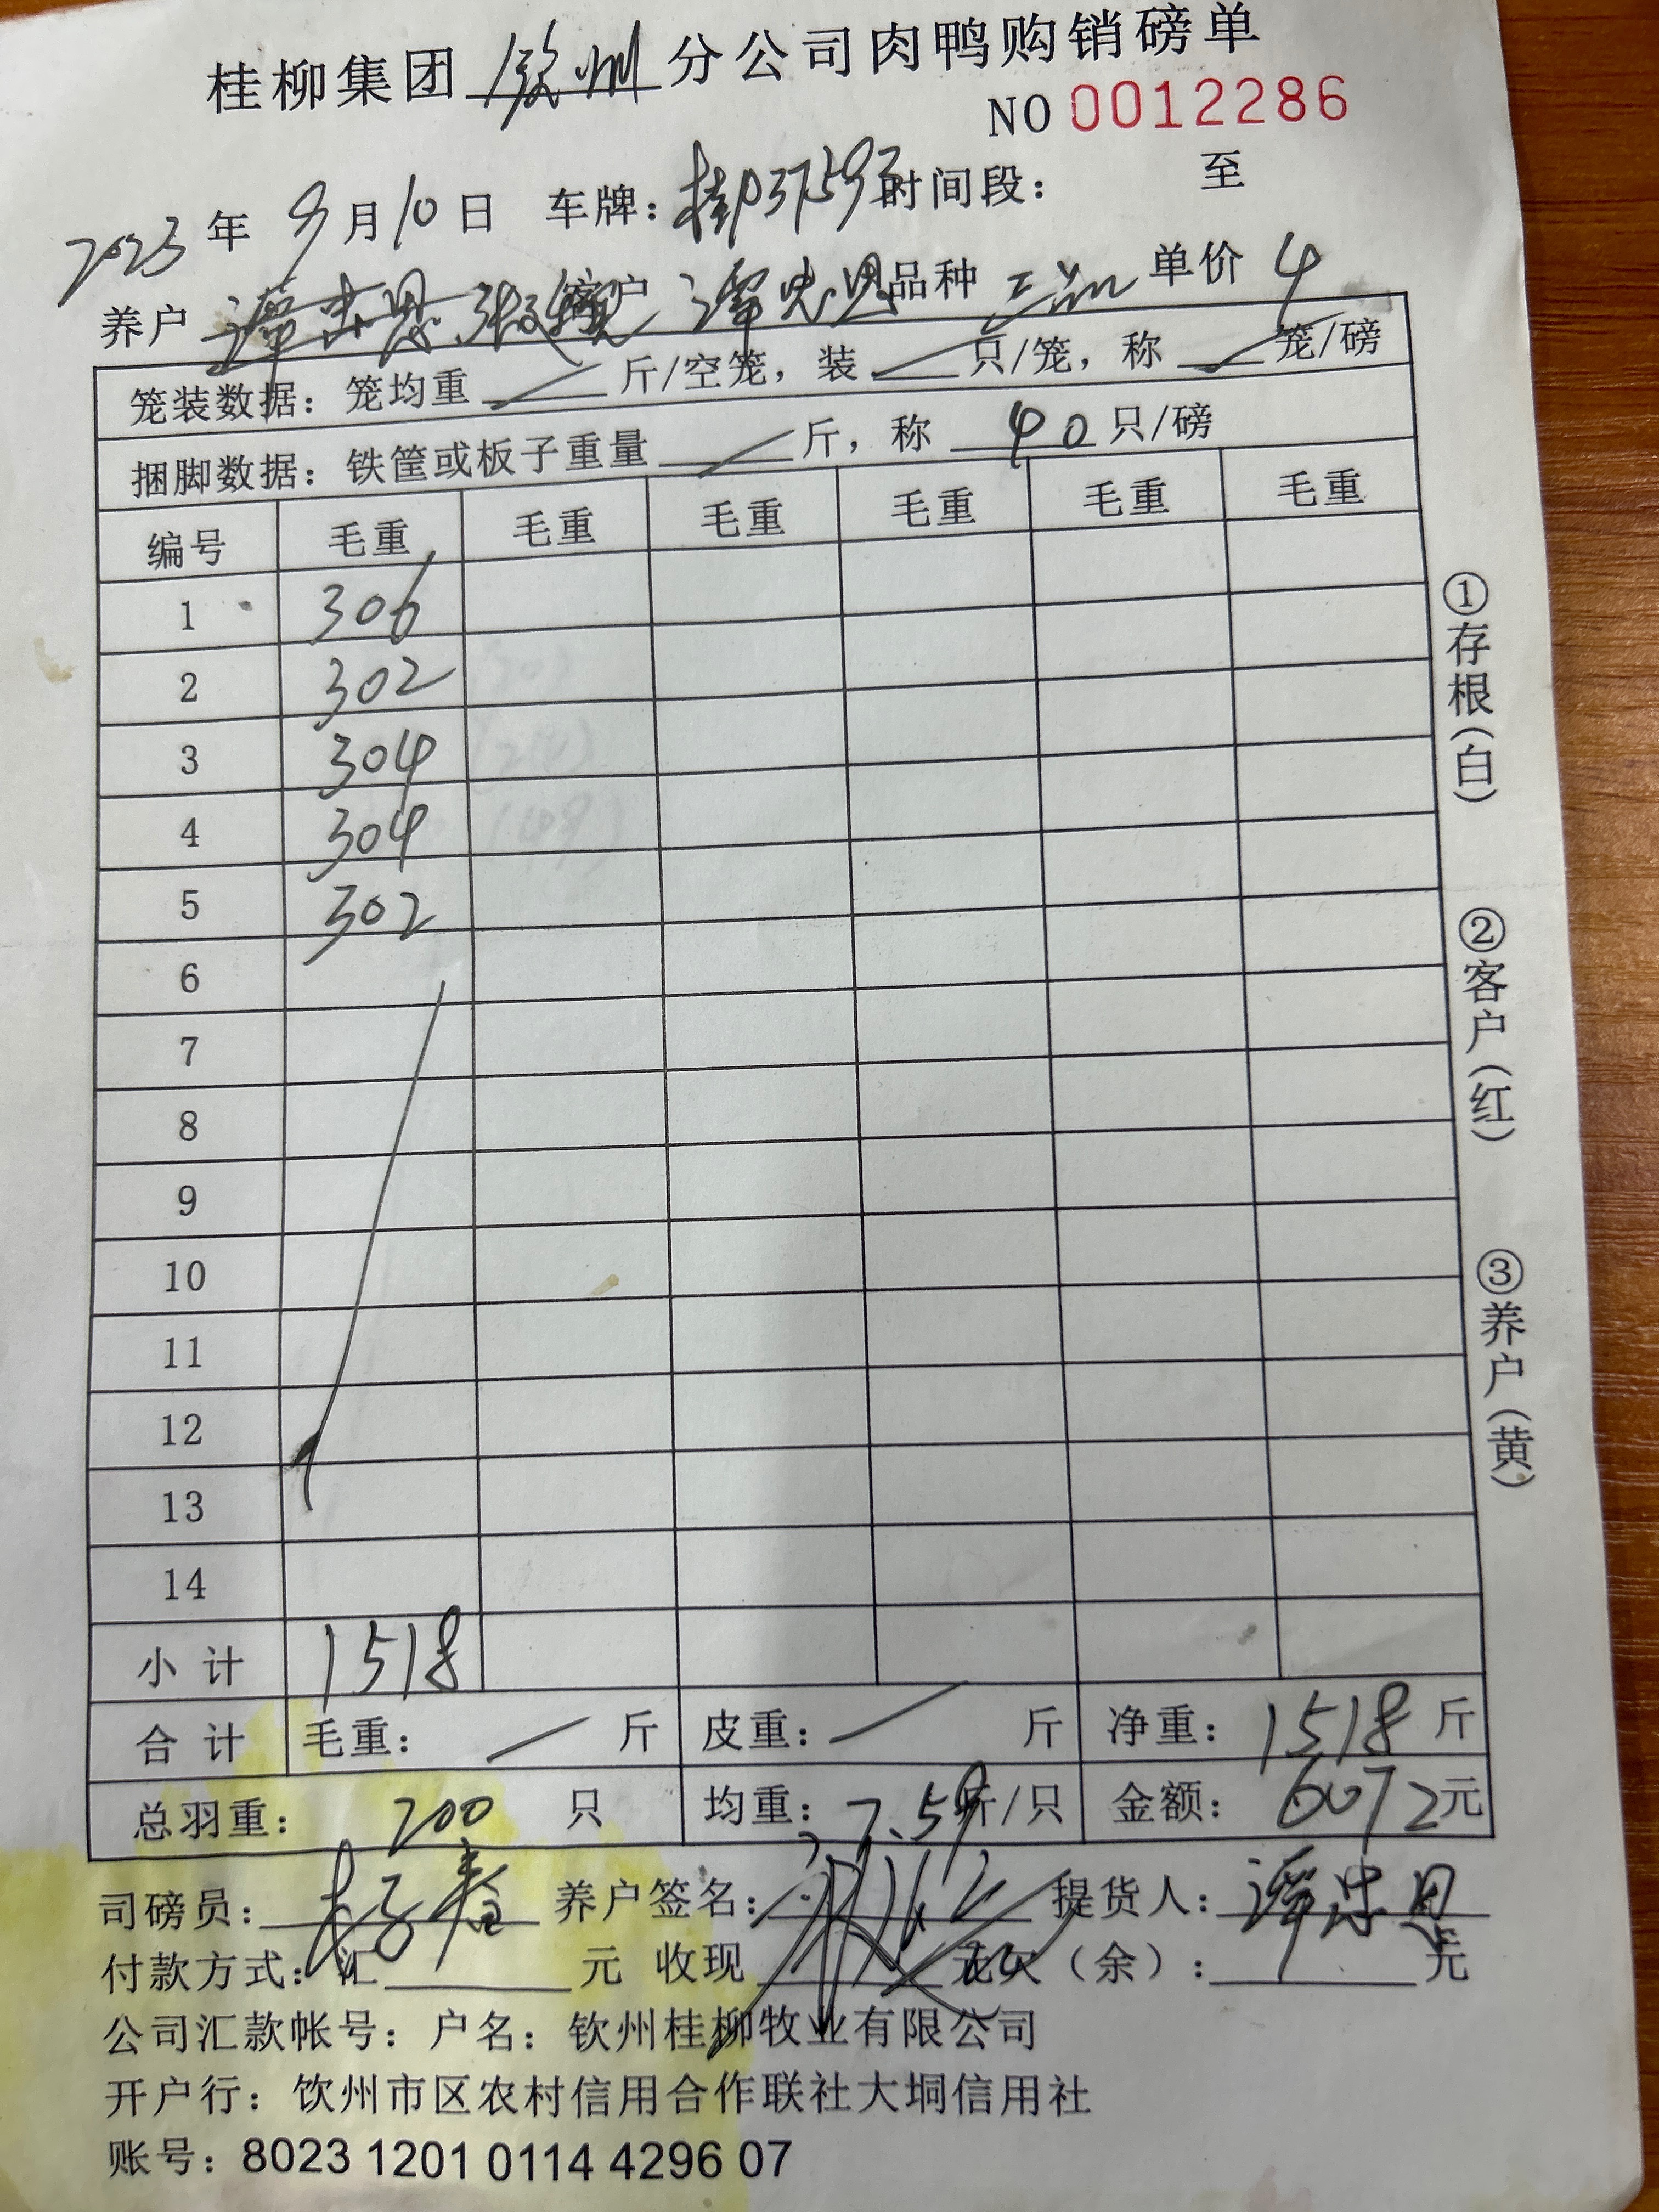 桂柳集团 钦州 分公司肉鸭购销磅单
NO 0012286
2023 年 9 月 10 日 车牌：桂P37593 时间段： 至
养户 客户 谭忠恩 品种 三品 单价 4
笼装数据：笼均重 斤/空笼，装 只/笼，称 笼/磅
捆脚数据：铁筐或板子重量 斤，称 40 只/磅
编号 毛重 毛重 毛重 毛重 毛重 毛重
1 306
2 302
3 304
4 304
5 302
6
7
8
9
10
11
12
13
14
小 计 1518
合 计 毛重： 斤 皮重： 斤 净重：1518 斤
总羽重：200 只 均重：7.59 斤/只 金额：6072 元
司磅员： 养户签名： 提货人：谭忠恩
付款方式：汇 元 收现 元欠（余）： 元
公司汇款帐号：户名：钦州桂柳牧业有限公司
开户行：钦州市区农村信用合作联社大垌信用社
账号：8023 1201 0114 4296 07
①存根（白）
②客户（红）
③养户（黄）